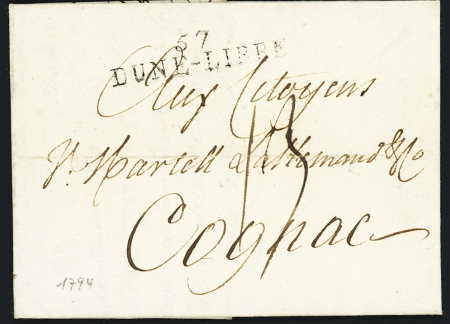 57
DUNE-LIBRE
Aux Citoyens
Martell Lallemand & Co
Cognac
1794